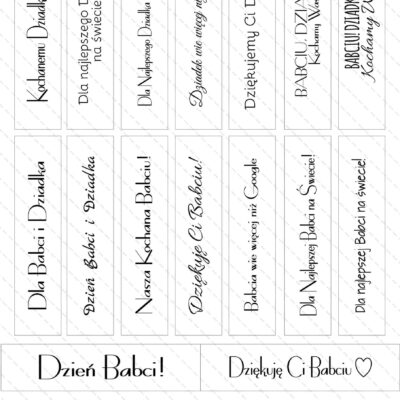 Kochanemu Dziadk
Dla najlepszego D
na świecie
Dla Najlepszego Dziadk
Dziadek wie więcej
Dziękujemy Ci D
BABCIU, DZIA
Kochamy Wa
BABCIU! DZIADK
Kochamy W
Dla Babci i Dziadka
Dzień Babci i Dziadka
Nasza Kochana Babciu!
Dziękuję Ci Babciu!
Babcia wie więcej niż Google
Dla Najlepszej Babci na Świecie!
Dla najlepszej Babci na świecie!
Dzień Babci!
Dziękuję Ci Babciu♡